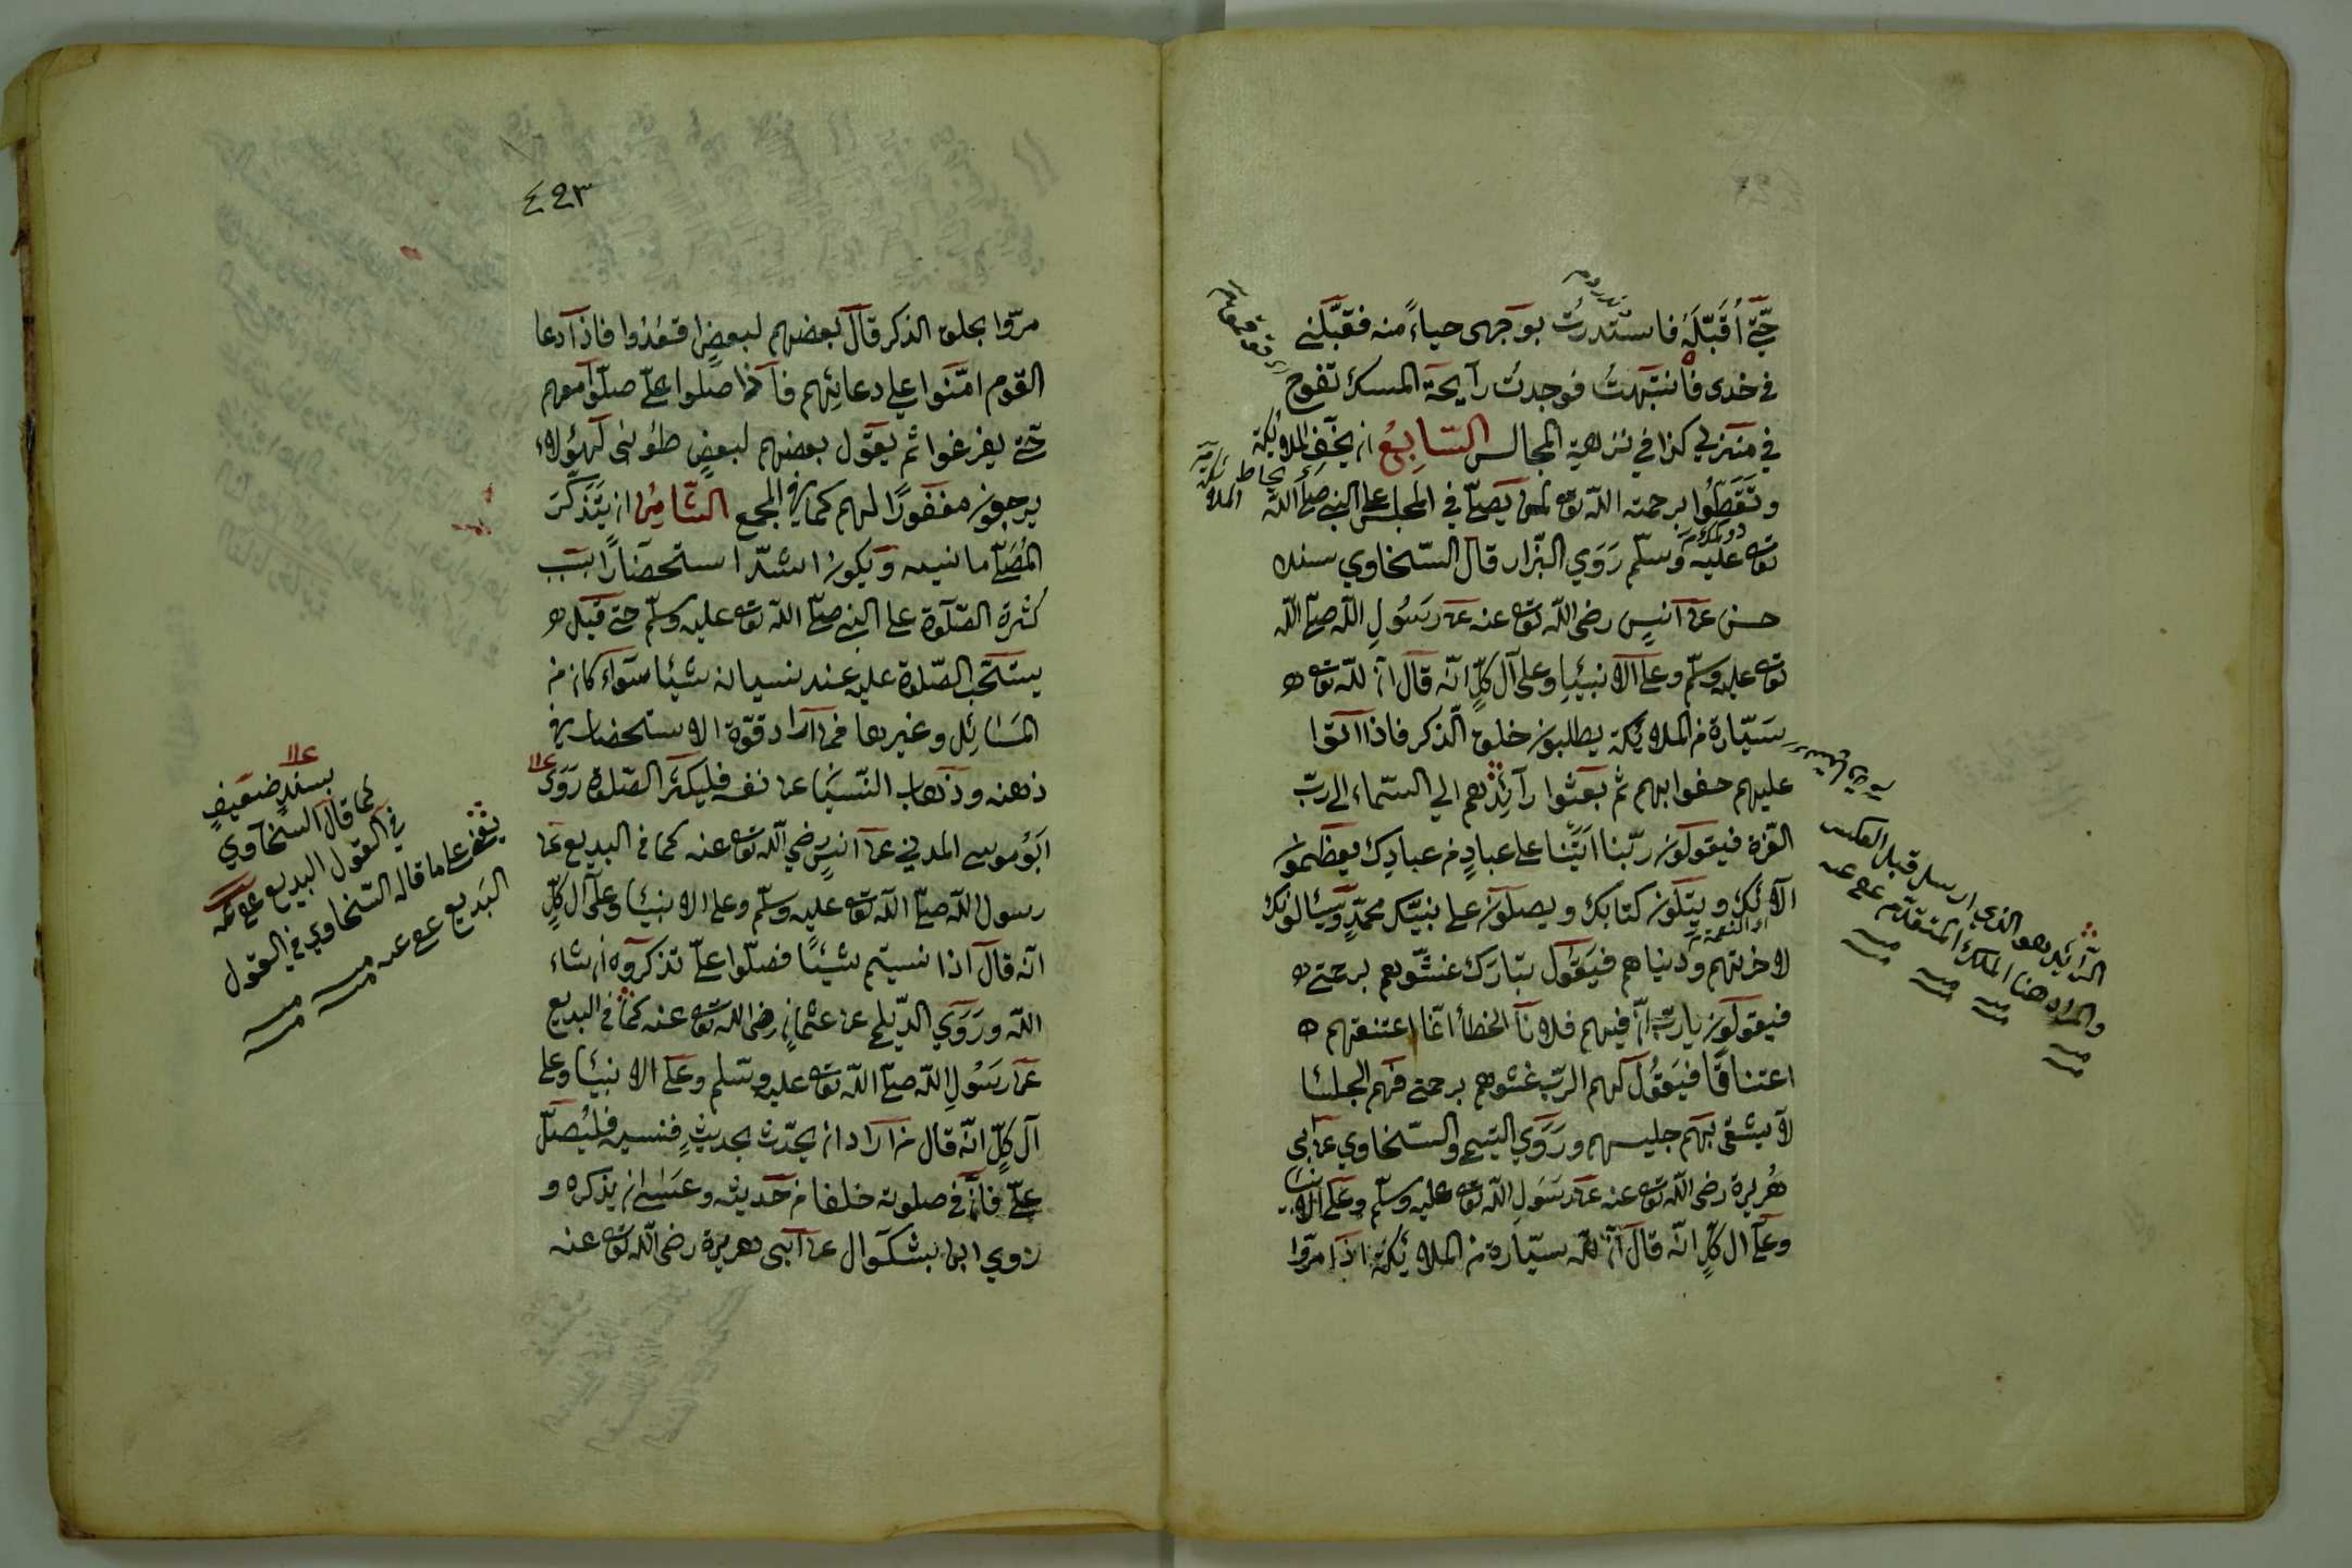 حتى أقبّله فاستدرت بوجهى حياءً منه فقبّلنى
فى خدى فانتبهتُ فوجدتُ رآيحة المسك تفوح
فى منزلي كذا في نزهة المجالس السّابِعُ ان يحفّ الملائكة
وتَغَطّوا برحمة اللّه تعه لمن يصلّى في المجلس على النبى صلّى اللّه
تعه عليه وسلّم رَوَي البزّار قال السّخاوي سنده
حسن عن انسٍ رضى اللّه تعه عنه عن رسُولِ اللّه صلّى اللّه
تعه عليه وسلّم وعلى الانبيا وعلى آل كلٍّ انّه قال انّ للّه تعه
سيّارة من الملائكة يطلبون حلق الذّكر فاذا اتوا
عليهم حفوا بهم ثم بعثوا رآئدهم الي السّماء الى ربّ
العزة فيقولون ربّنا اتَيْنا على عبادٍ من عبادك يعظّمون
آلائك ويتلون كتابك ويصلّون على نبيّك محمّدٍ ويسئالونك
لاخرتهم ودنياهم فيقول تبارك غشّوهم برحمتى
فيقولون يا ربّ انّ فيهم فلانا الخطأ انّما اعتنقهم
اعتناقًا فيقُول لهم الربّ غشوهم برحمتى فهم الجلسا
لا يشقى بهم جليسهم ورَوَي التيمى والسّخاوي عن ابى
هُريرة رضى اللّه تعه عنه عن رسَولِ اللّه تعه عليه وسلّم وعلى الانبيا
وعلى آل كلٍّ انّه قال انّ للّه سيّارة من الملائكة اذا مرّوا
الرّآئد هو الذى ارسل قبل العكس
والمراد هنا الملك المتقدّم عفى عنه
٤٢٣
مرّوا بحلق الذكر قال بعضهم لبعضٍ اقعُدُوا فاذا دعا
القوم امّنوا علي دعائِهم فاذا صلوا علىّ صلّوا معهم
حتّى يفرغوا ثم يقول بعضهم لبعضٍ طوُبى لهؤلاء
يرجعون مغفورًا لهم كما في المجمع الثّامِنُ ان يتَذكّرَ
المُصلّى ما نسيه ويكون اشدّ استحضارًا بسَبب
كثرة الصّلوة على النبى صلّى اللّه تعه عليه وسلّم حتى قيل
يستحّب الصّلوة عليه عند نسيانه شيئا سوآء كان من
المسَائِل وغيرها فمن اراد قوّة الاستحضار في
ذهنه وذهاب النّسيَان عن نفسه فليكثر الصّلوة رَوَى
ابَوُ موسى المدينى عن انسٍ رضى اللّه تعه عنه كما فى البديع عن
رسول اللّه صلّى اللّه تعه عليه وسلّم وعلى الانبيَا وعلى آل كلٍّ
انّه قال اذا نسيتم شيئًا فصلّوا علىّ تذكروه ان شاء
اللّه ورَوَي الدّيلمى عن عثمان رضى اللّه تعه عنه كما فى البديع
عن رسَولِ اللّه صلّى اللّه تعه عليه وسّلم وعَلى الانبيَا وعلى
آل كلٍّ انّه قال من اراد ان يحدّث بحديثٍ فنسيه فليُصلّ
علىّ فانّ في صلوته خلفا من حَديثه وعَسَى ان يذكره و
رَوي ابن بشكوال عن ابى هريرة رضى اللّه تعه عنه
بسندٍ ضعيفٍ
كما قال السخاوي
في القول البديع عفى عنه
على ما قاله السّخاوي في القول
البَديع عفى عنه